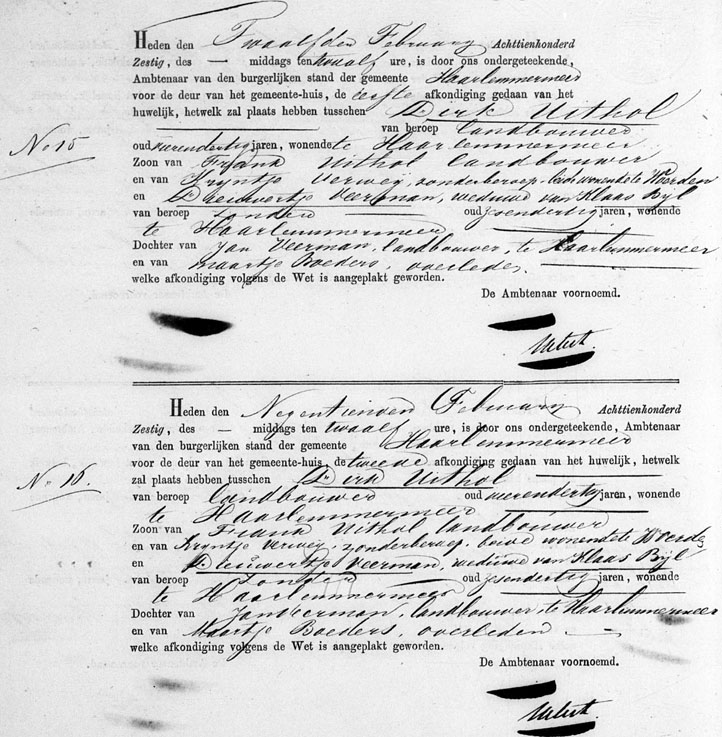 Heden den Twaalfden February Achttienhonderd
Zestig, des — middags ten twaalf ure, is door ons ondergeteekende,
Ambtenaar van den burgerlijken stand der gemeente Haarlemmermeer
voor de deur van het gemeente-huis, de eerste afkondiging gedaan van het
huwelijk, hetwelk zal plaats hebben tusschen Dirk Uithol
van beroep landbouwer
No 15
oud vierendertig jaren, wonende te Haarlemmermeer
Zoon van Frank Uithol landbouwer
en van Kryntje Verweij, zonder beroep, beide wonende te Woerden
en Dieuwertje Veerman, weduwe van Klaas Byl
van beroep Zonder oud zesendertig jaren, wonende
te Haarlemmermeer
Dochter van Jan Veerman, landbouwer, te Haarlemmermeer
en van Maartje Boeders, overleden.
welke afkondiging volgens de Wet is aangeplakt geworden.
De Ambtenaar voornoemd.
Heden den Negentienden February Achttienhonderd
Zestig, des — middags ten twaalf ure, is door ons ondergeteekende, Ambtenaar
van den burgerlijken stand der gemeente Haarlemmermeer
voor de deur van het gemeente-huis, de tweede afkondiging gedaan van het huwelijk, hetwelk
No 16.
zal plaats hebben tusschen Dirk Uithol
van beroep landbouwer oud vierendertig jaren, wonende
te Haarlemmermeer
Zoon van Frank Uithol landbouwer
en van Kryntje Verweij, zonder beroep, beide wonende te Woerde
en Dieuwertje Veerman, weduwe van Klaas Byl
van beroep Zonder oud zesendertig jaren, wonende
te Haarlemmermeer
Dochter van Jan Veerman, landbouwer, te Haarlemmermeer
en van Maartje Boeders, overleden —
welke afkondiging volgens de Wet is aangeplakt geworden.
De Ambtenaar voornoemd.